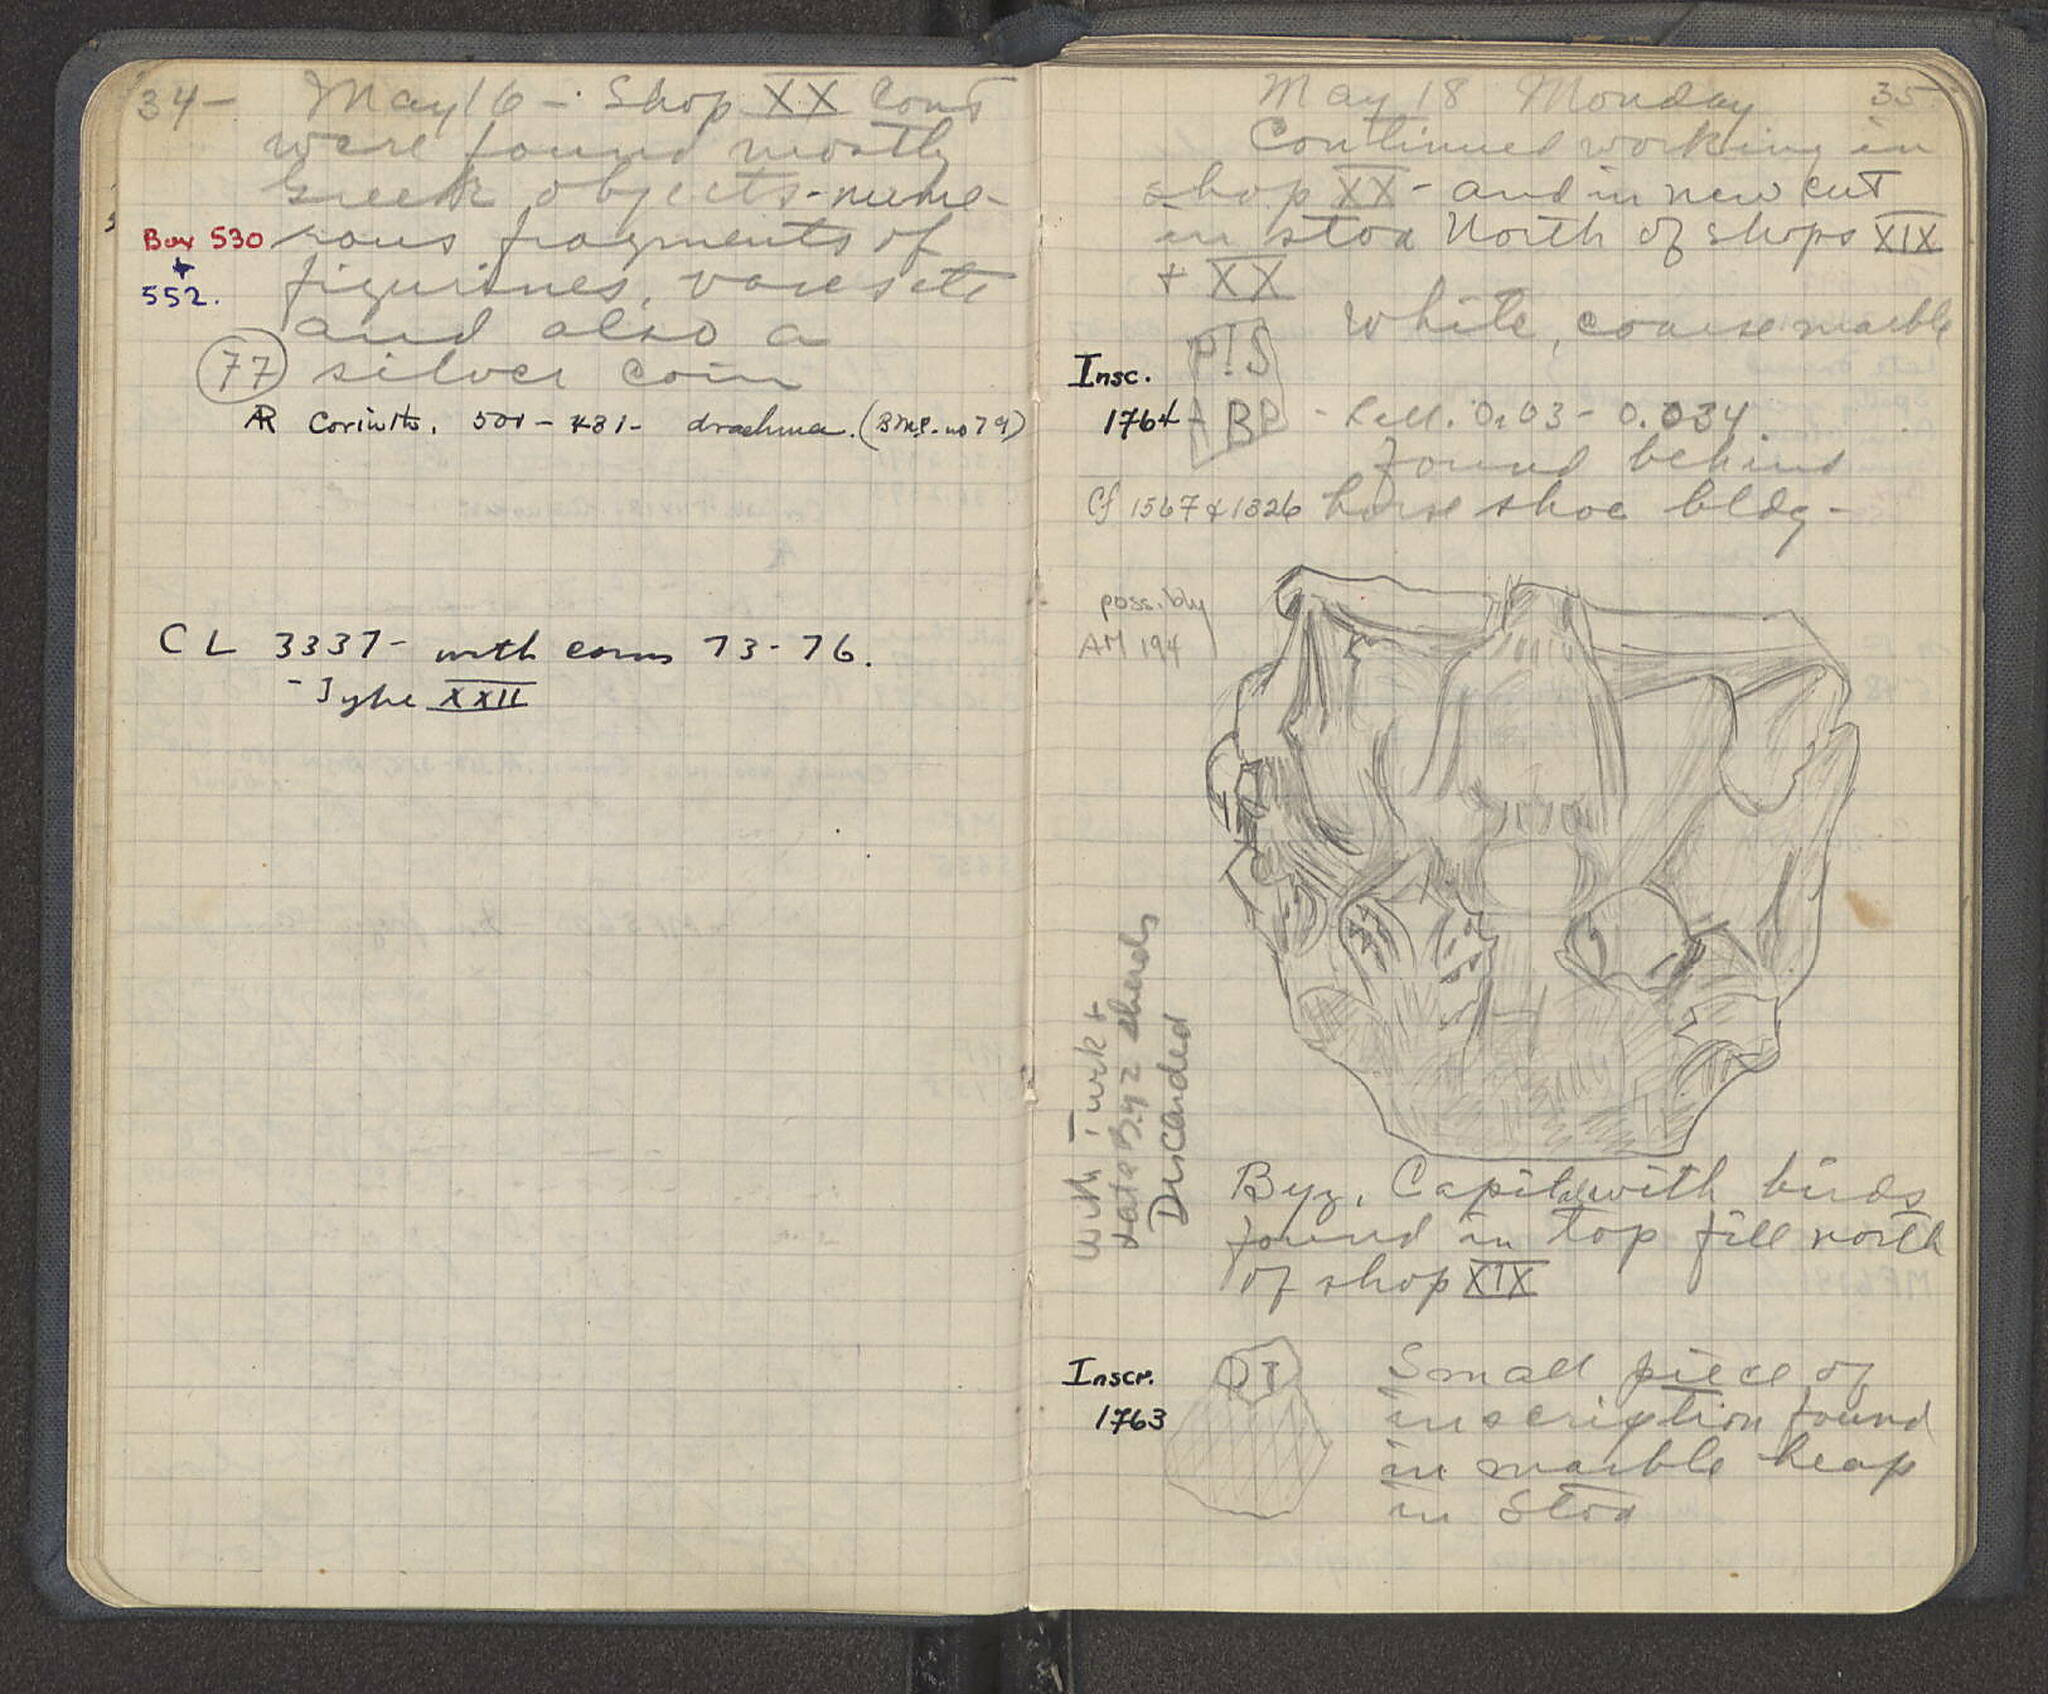 34 - May 16 - Shop XX Cont
were found mostly
Greek objects - nume-
rous fragments of
Box 530
+
552.
figurines, vases etc
and also a
77 silver coin
AR Corinth. 501 - 431 - drachma. (BMC. no 79)
CL 3337 - with coins 73 - 76.
- Type XXII
May 18 Monday 35
Continued working in
shop XX - and in new cut
in stoa North of shops XIX
+ XX
White, coarse marble
Insc.
1764
P I S
A B P
- Lett. 0.03 - 0.034
found behind
Cf 1567 & 1326
horse shoe bldg -
possibly
AM 194
with Turk +
late Byz sherds
Discarded
Byz. Capital with birds
found in top fill north
of shop XIX
Inscr.
1763
D I
Small piece of
inscription found
in marble heap
in Stoa